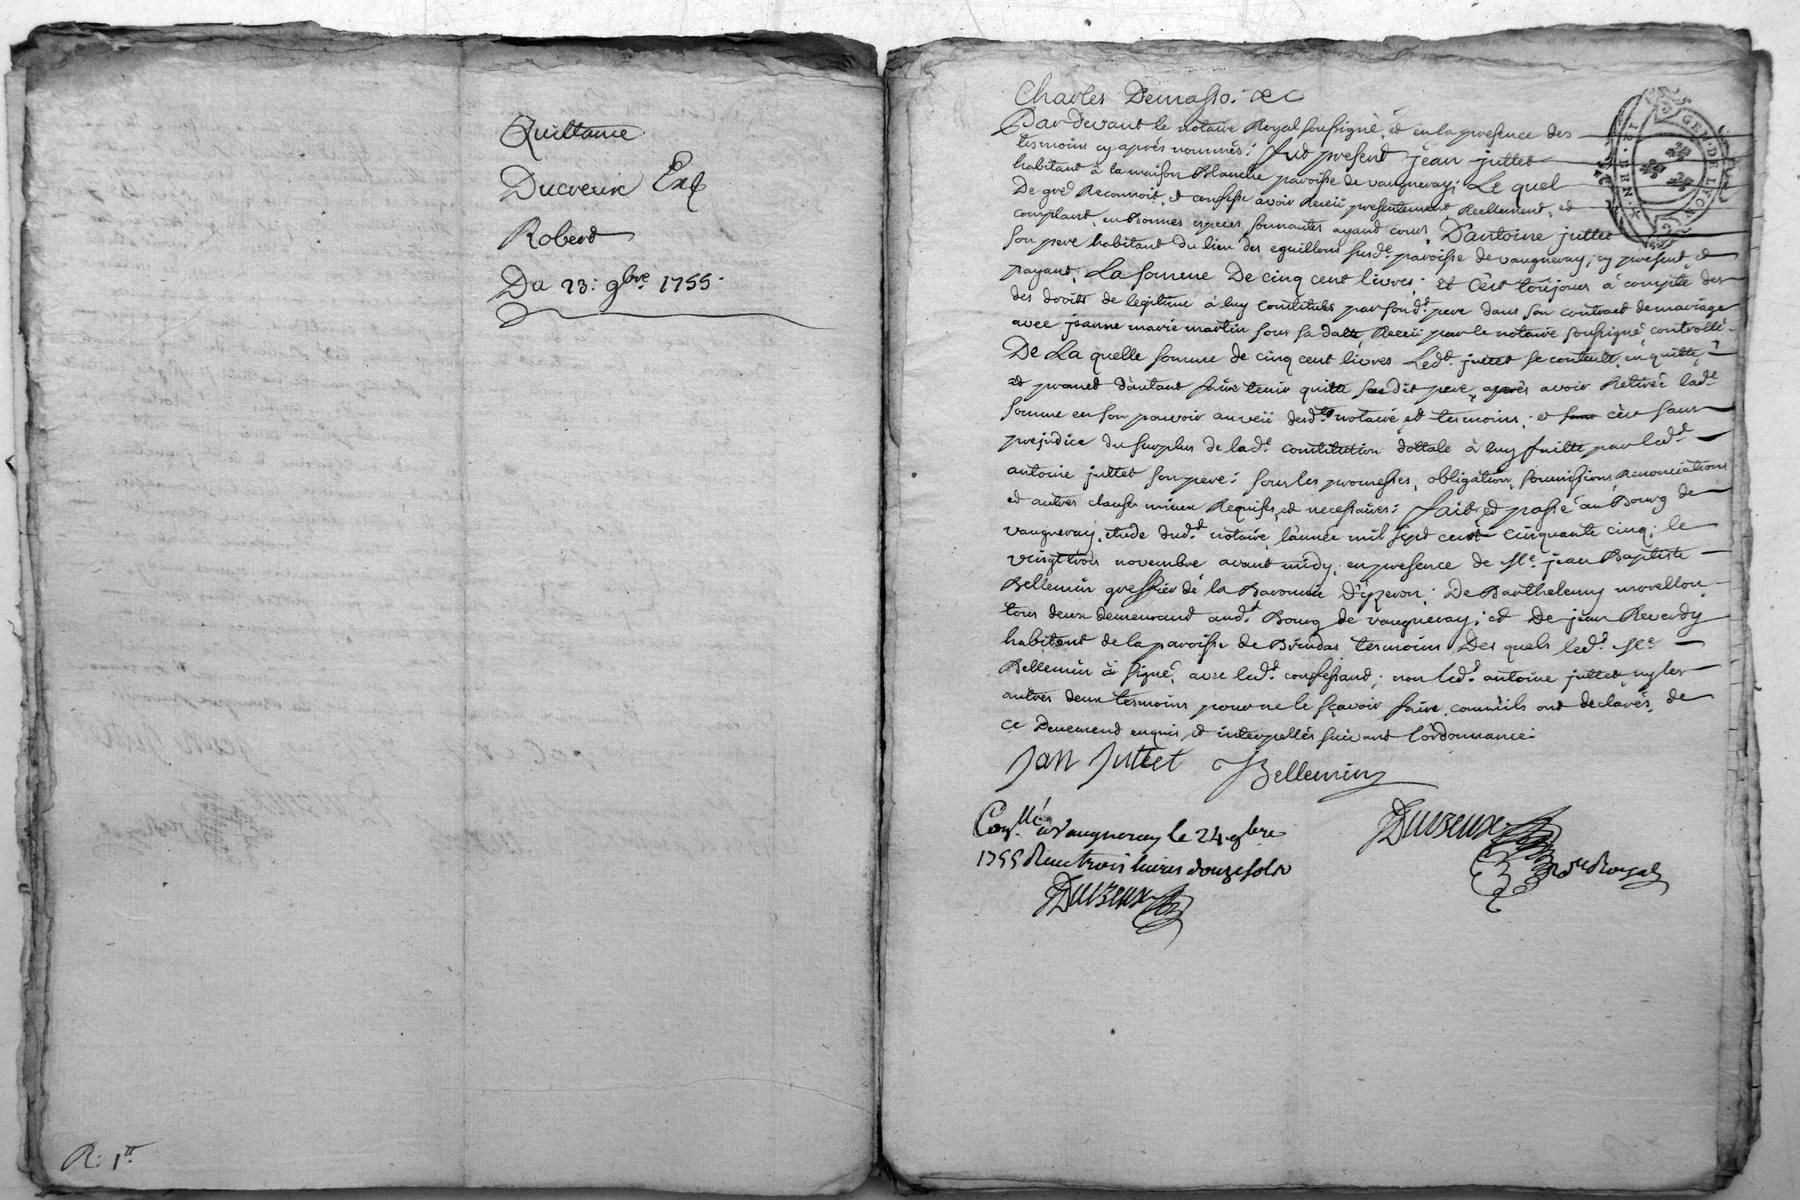 Quittance
Ducreux Et
Robert
Du 23: 9bre. 1755.
R: 1tt
Charles Demasso. &c
GEN. D. LYON
Par devant le notaire Royal soussigné, et en la presence des
tesmoins cy après nommés: fut present jean juttet
habitant à la maison Blanche paroisse de vaugneray; Le quel
De gré Reconnoit, et confesse avoir Receü presentement Reellement, et
comptant, en Bonnes especes sonnantes ayant cours, D'antoine juttet
son pere habitant du lieu des eguillons susd.e paroisse de vaugneray; cy present, et
payant; La somme De cinq cent livres; et c'est toujours à compte des
des droits de legitime à luy constitués par sond.t pere dans son contract de mariage
avec jeanne marie martin sous sa datte, Receü par le notaire soussigné, controllé.
De La quelle somme de cinq cent livres Led.t juttet se contente, en quitte,
et promet d'autant faire tenir quitte son dit pere, après avoir Retirée lad.e
somme en son pouvoir au veü desd.ts notaire, et tesmoins; et sans c'est sans
prejudice du surplus de lad.e constitution dottale à luy faitte par led.t
antoine juttet son pere: sous les promesses, obligation, soumissions, Renonciations
et autres clauses mieux Requises, et necessaires: fait, et passé au Bourg de
vaugneray, etude dud.t notaire, l'année mil sept cent cinquante cinq; le
vingttrois novembre avant midy; en presence de Me. jean Baptiste
Bellemin greffier de la Baronnie D'yzeron; De Barthelemy morellon
tous deux demeurant aud.t Bourg de vaugneray; et De jean Reverdy
habitant de la paroisse de Brindas tesmoins Des quels led.t Me
Bellemin à signé, avec led.t confessant; non led.t antoine juttet, ny les
autres deux tesmoins pour ne le sçavoir faire, comm'ils ont declarés, de
ce Deuement enquis, et interpellés suivant l'ordonnance:
Jan Juttet Bellemin
Conllé à Vaugneray le 24. 9bre
1755 Reçu trois livres douze sols
Ducreux
Ducreux
nore Royal